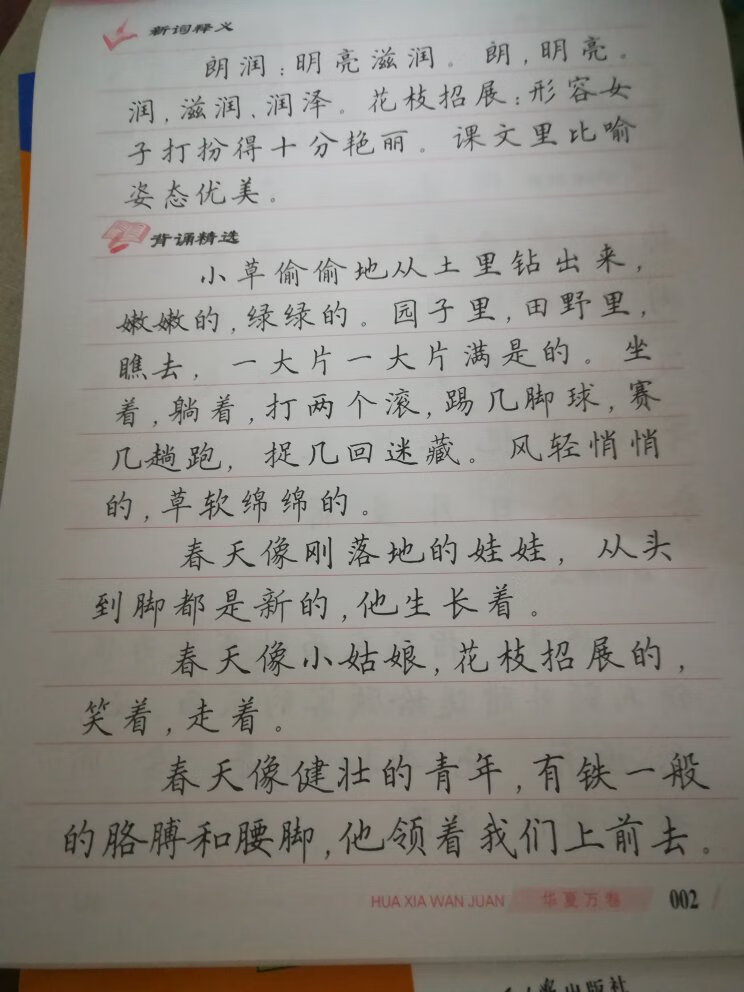 新词释义
朗润：明亮滋润。朗，明亮。
润，滋润、润泽。花枝招展：形容女
子打扮得十分艳丽。课文里比喻
姿态优美。
背诵精选
小草偷偷地从土里钻出来，
嫩嫩的，绿绿的。园子里，田野里，
瞧去，一大片一大片满是的。坐
着，躺着，打两个滚，踢几脚球，赛
几趟跑，捉几回迷藏。风轻悄悄
的，草软绵绵的。
春天像刚落地的娃娃，从头
到脚都是新的，他生长着。
春天像小姑娘，花枝招展的，
笑着，走着。
春天像健壮的青年，有铁一般
的胳膊和腰脚，他领着我们上前去。
HUA XIA WAN JUAN 华夏万卷 002
出版社